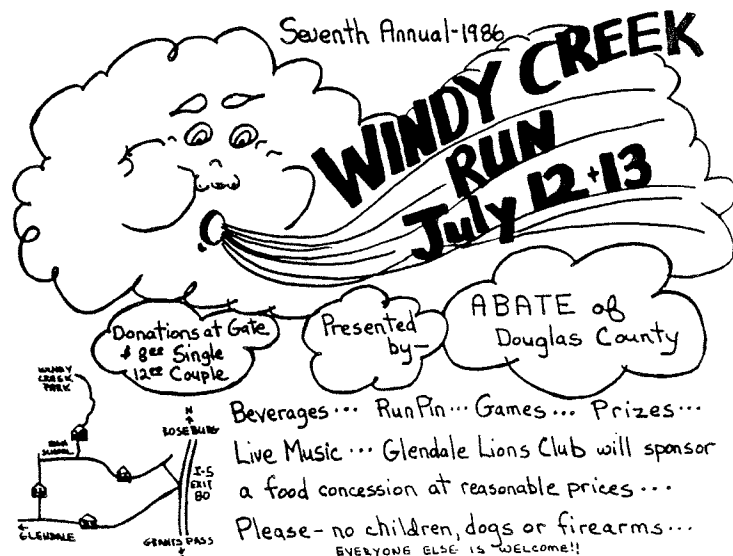 Seventh Annual-1986
WINDY CREEK
RUN
July 12+13
Donations at Gate
$8ºº Single
12ºº Couple
Presented
by—
ABATE of
Douglas County
WINDY
CREEK
PARK
HIGH
SCHOOL
N
ROSEBURG
I-5
EXIT
80
GLENDALE
GRANTS PASS
Beverages... Run Pin... Games... Prizes...
Live Music... Glendale Lions Club will sponsor
a food concession at reasonable prices...
Please - no children, dogs or firearms...
EVERYONE ELSE IS WELCOME!!